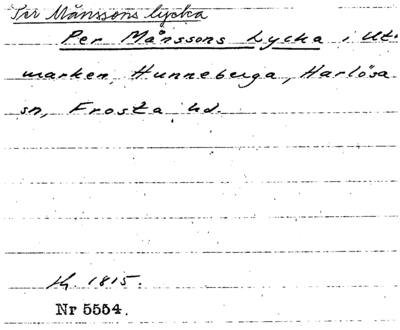 Per Månssons lycka
Per Månssons Lycka i Ut-
marken, Hunneberga, Harlösa
sn, Frosta hd.
1815.
Nr 5554.